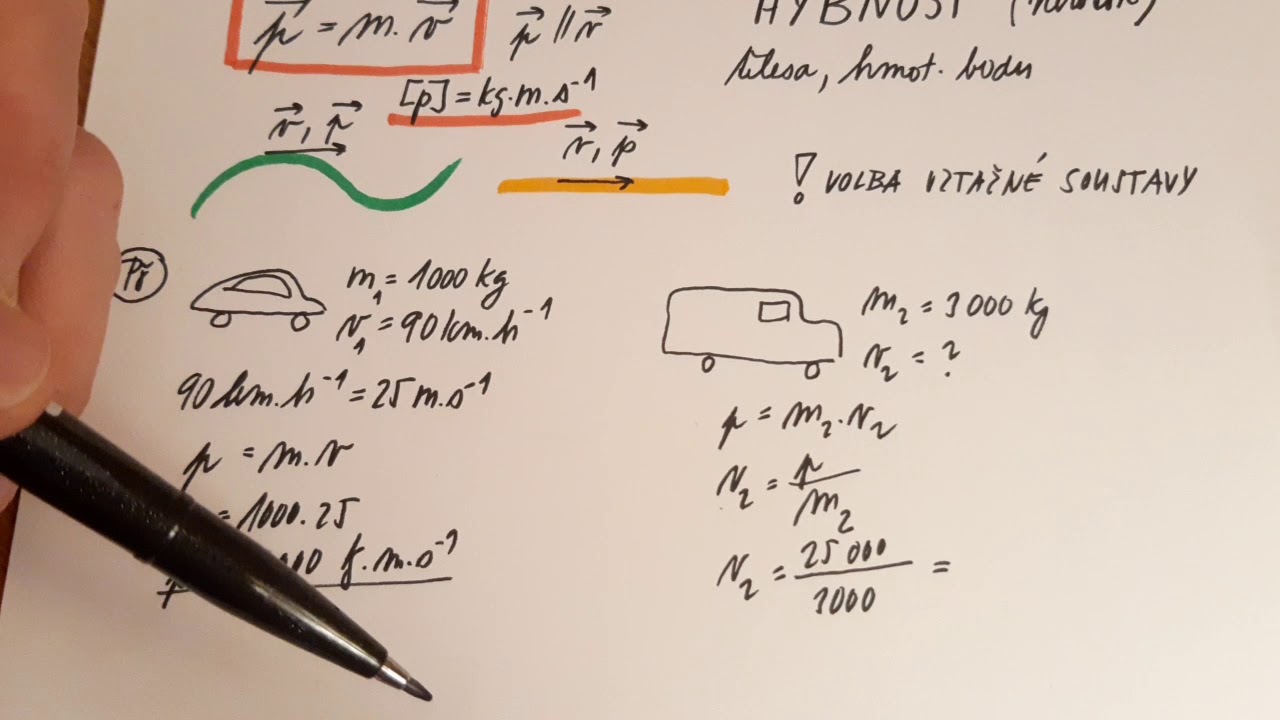 p = m. v
p // v
HYBNOST
tělesa, hmot. bodu
[p] = kg.m.s⁻¹
v, p
v, p
! VOLBA VZTAŽNÉ SOUSTAVY
Př
m₁ = 1000 kg
v₁ = 90 km.h⁻¹
90 km.h⁻¹ = 25 m.s⁻¹
p = m.v
= 1000.25
m₂ = 3000 kg
v₂ = ?
p = m₂.v₂
v₂ = p/m₂
v₂ = 25 000/3000 =